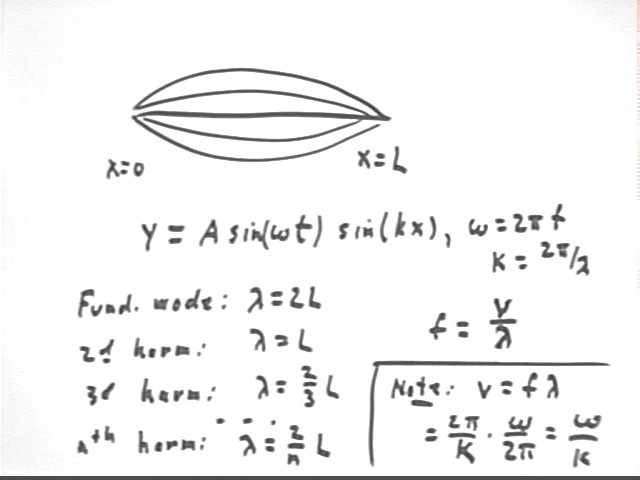 x=0 x=L
y = A sin(ωt) sin(kx), ω=2πf
K = 2π/λ
Fund. mode: λ=2L
f = v/λ
2d harm: λ=L
3d harm: λ=2/3 L
nth harm: λ=2/n L
Note: v=fλ
= 2π/K · ω/2π = ω/K